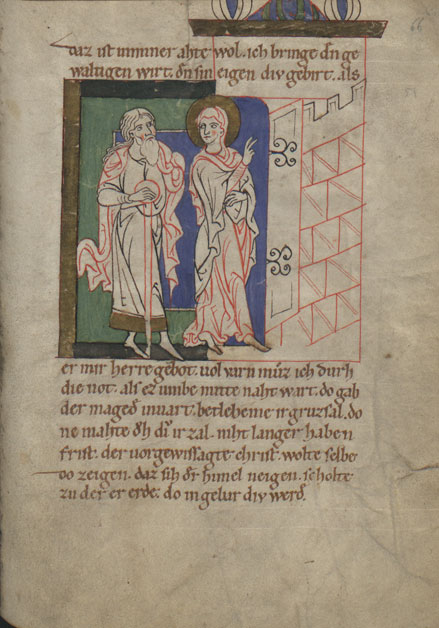 daz ist immer ahte wol. ich bringe dn ge
waltigen wirt. dn sin eigen div gebirt. als
er mir herre gebot. vol varn mvz ich durh
die not. als ez umbe mitte naht wart. do gab
der maged inuart. betleheme ir gruzsal. do
ne mahte dh div ir zal. niht langer haben
frist. der vorgewissagte christ. wolte selbe
zeigen. daz sih der himel neigen. scholte
zu der erde. do in gelur div werd.
66
51